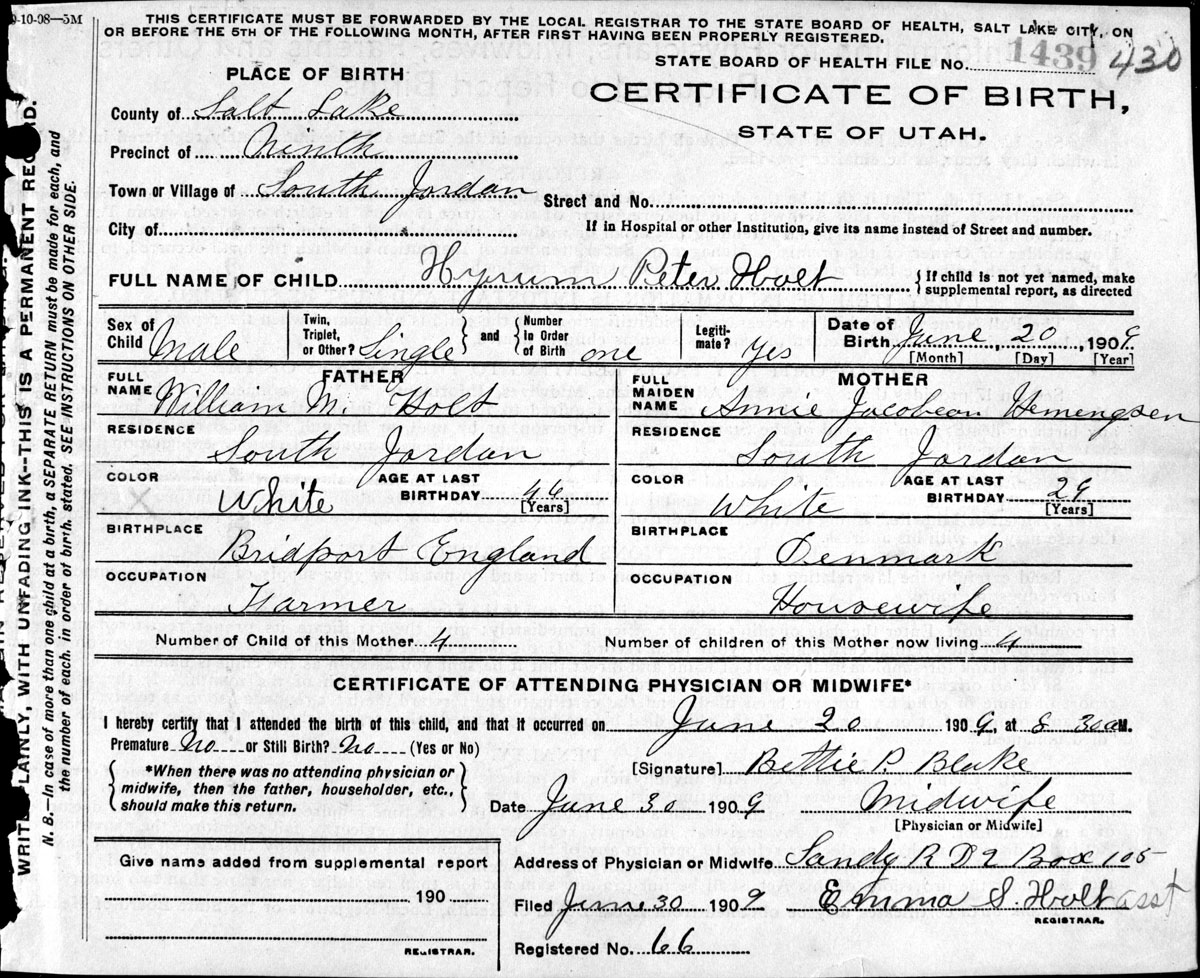 9-10-08—5M
THIS CERTIFICATE MUST BE FORWARDED BY THE LOCAL REGISTRAR TO THE STATE BOARD OF HEALTH, SALT LAKE CITY, ON
OR BEFORE THE 5TH OF THE FOLLOWING MONTH, AFTER FIRST HAVING BEEN PROPERLY REGISTERED.
STATE BOARD OF HEALTH FILE No. 1439 430
PLACE OF BIRTH
CERTIFICATE OF BIRTH,
STATE OF UTAH.
County of Salt Lake
Precinct of Ninth
Town or Village of South Jordan
Street and No.
City of
If in Hospital or other Institution, give its name instead of Street and number.
FULL NAME OF CHILD Hyrum Peter Holt
{If child is not yet named, make
supplemental report, as directed
Sex of Child Male
Twin, Triplet, or Other? Single } and { Number In Order of Birth one
Legitimate? Yes
Date of Birth June 20, 1909
[Month] [Day] [Year]
FATHER
FULL NAME William M. Holt
RESIDENCE
South Jordan
COLOR White
AGE AT LAST BIRTHDAY 46
[Years]
BIRTHPLACE
Bridport England
OCCUPATION
Farmer
MOTHER
FULL MAIDEN NAME Annie Jacobean
RESIDENCE
South Jordan
COLOR White
AGE AT LAST BIRTHDAY 29
[Years]
BIRTHPLACE
Denmark
OCCUPATION
Housewife
Number of Child of this Mother 4
Number of children of this Mother now living 4
CERTIFICATE OF ATTENDING PHYSICIAN OR MIDWIFE*
I hereby certify that I attended the birth of this child, and that it occurred on June 20 1909, at 8 30 a M.
Premature No or Still Birth? No (Yes or No)
{*When there was no attending physician or
midwife, then the father, householder, etc.,
should make this return.}
[Signature] Bettie P. Blake
Date June 30 1909 Midwife
[Physician or Midwife]
Give name added from supplemental report
190
REGISTRAR.
Address of Physician or Midwife Sandy R D 2 Box 105
Filed June 30 1909 Emma S. Holt asst
REGISTRAR.
Registered No. 66
WRITE PLAINLY, WITH UNFADING INK—THIS IS A PERMANENT RECORD.
N. B.—In case of more than one child at a birth, a SEPARATE RETURN must be made for each, and
the number of each, in order of birth, stated. SEE INSTRUCTIONS ON OTHER SIDE.